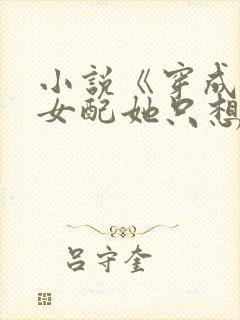 小说《穿成
女配她只想
吕守奎